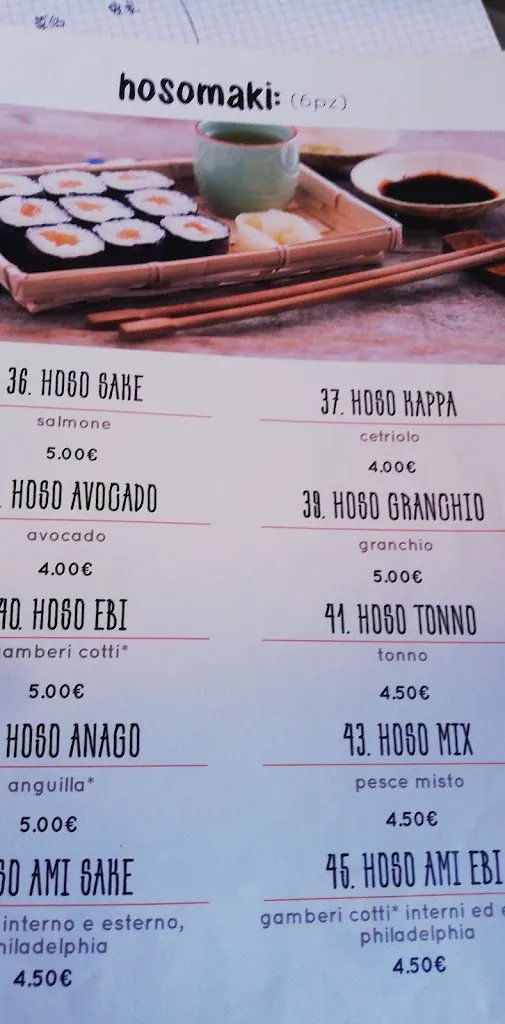 hosomaki: (6pz)
36. HOSO SAKE
salmone
5.00€
37. HOSO KAPPA
cetriolo
4.00€
HOSO AVOCADO
avocado
4.00€
39. HOSO GRANCHIO
granchio
5.00€
40. HOSO EBI
amberi cotti*
5.00€
41. HOSO TONNO
tonno
4.50€
HOSO ANAGO
anguilla*
5.00€
43. HOSO MIX
pesce misto
4.50€
SO AMI SAKE
interno e esterno,
hiladelphia
4.50€
45. HOSO AMI EBI
gamberi cotti* interni ed
philadelphia
4.50€